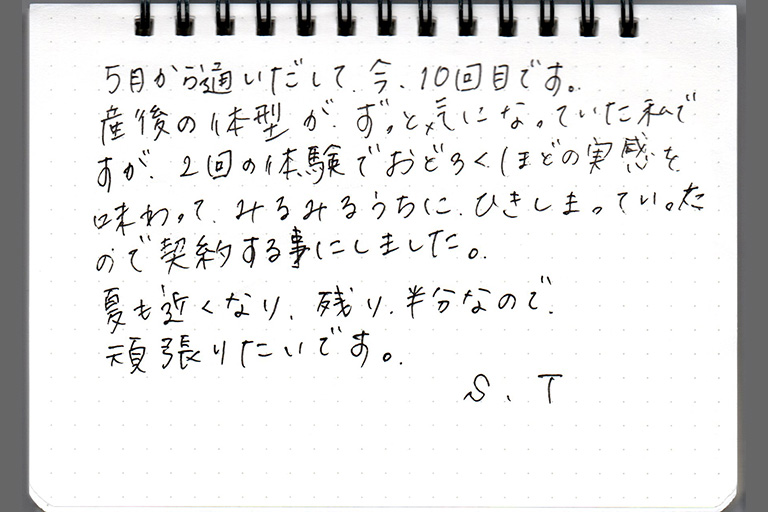 5月から通いだして、今、10回目です。
産後の体型が、ずっと気になっていた私で
すが、2回の体験でおどろくほどの実感を
味わって、みるみるうちに、ひきしまっていった
ので契約する事にしました。
夏も近くなり、残り、半分なので、
頑張りたいです。
S、T